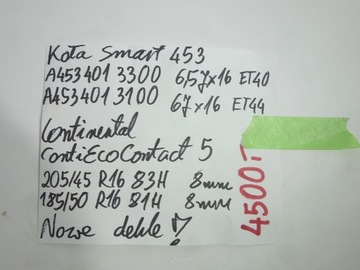 Koła Smart 453
A453 401 3300 6,5Jx16 ET40
A453401 3100 6Jx16 ET44
Continental
ContiEcoContact 5
205/45 R16 83H 8mm
185/50 R16 81H 8mm
Nowe dekle!
4500,-